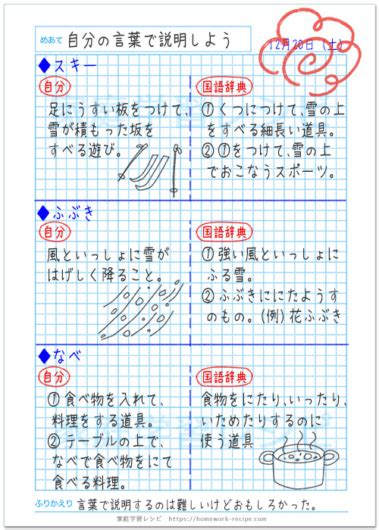 めあて 自分の言葉で説明しよう
12月20日(土)
◆スキー
自分
足にうすい板をつけて、
雪が積もった坂を
すべる遊び。
国語辞典
①くつにつけて、雪の上
をすべる細長い道具。
②①をつけて、雪の上
でおこなうスポーツ。
◆ふぶき
自分
風といっしょに雪が
はげしく降ること。
国語辞典
①強い風といっしょに
ふる雪。
②ふぶきににたようす
のもの。(例)花ふぶき
◆なべ
自分
①食べ物を入れて、
料理をする道具。
②テーブルの上で、
なべで食べ物をにて
食べる料理。
国語辞典
食物をにたり、いったり、
いためたりするのに
使う道具
ふりかえり 言葉で説明するのは難しいけどおもしろかった。
家庭学習レシピ https://homework-recipe.com